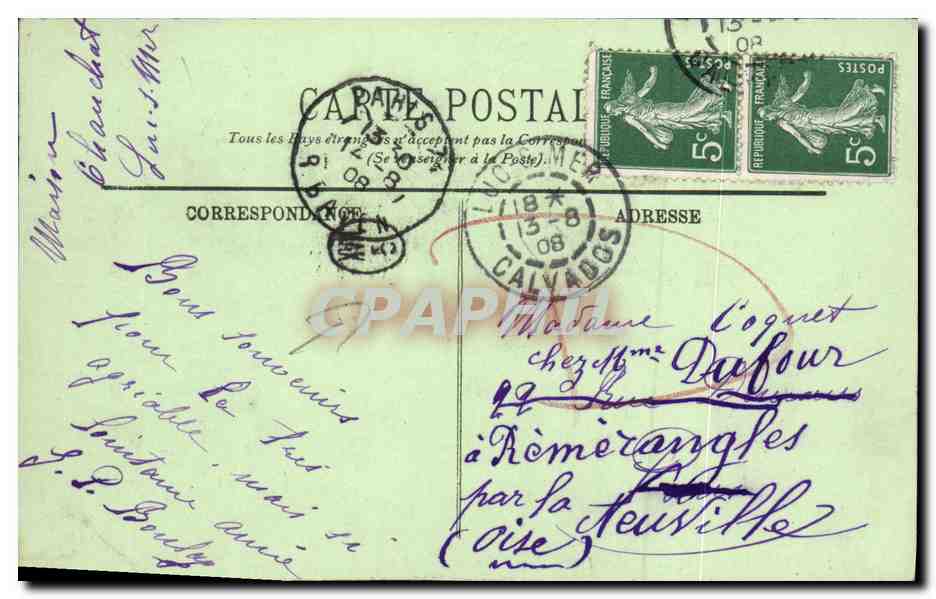 CARTE POSTALE
Tous les Pays étrangers n'acceptent pas la Correspon
(Se renseigner à la Poste).
CORRESPONDANCE
ADRESSE
Maison
Chanchat
Luc-s-Mer
Bons souvenirs
pour la très
agréable, mais si
lointaine amie
Madame Coquet
chez Mme Dufour
99 Rue
à Rémérangles
par la Neuville
(Oise)
REPUBLIQUE FRANÇAISE
POSTES
5c
REPUBLIQUE FRANÇAISE
POSTES
5c
LUC-S-MER
18*
13-8
08
CALVADOS
13-8
08
CPAPHIL